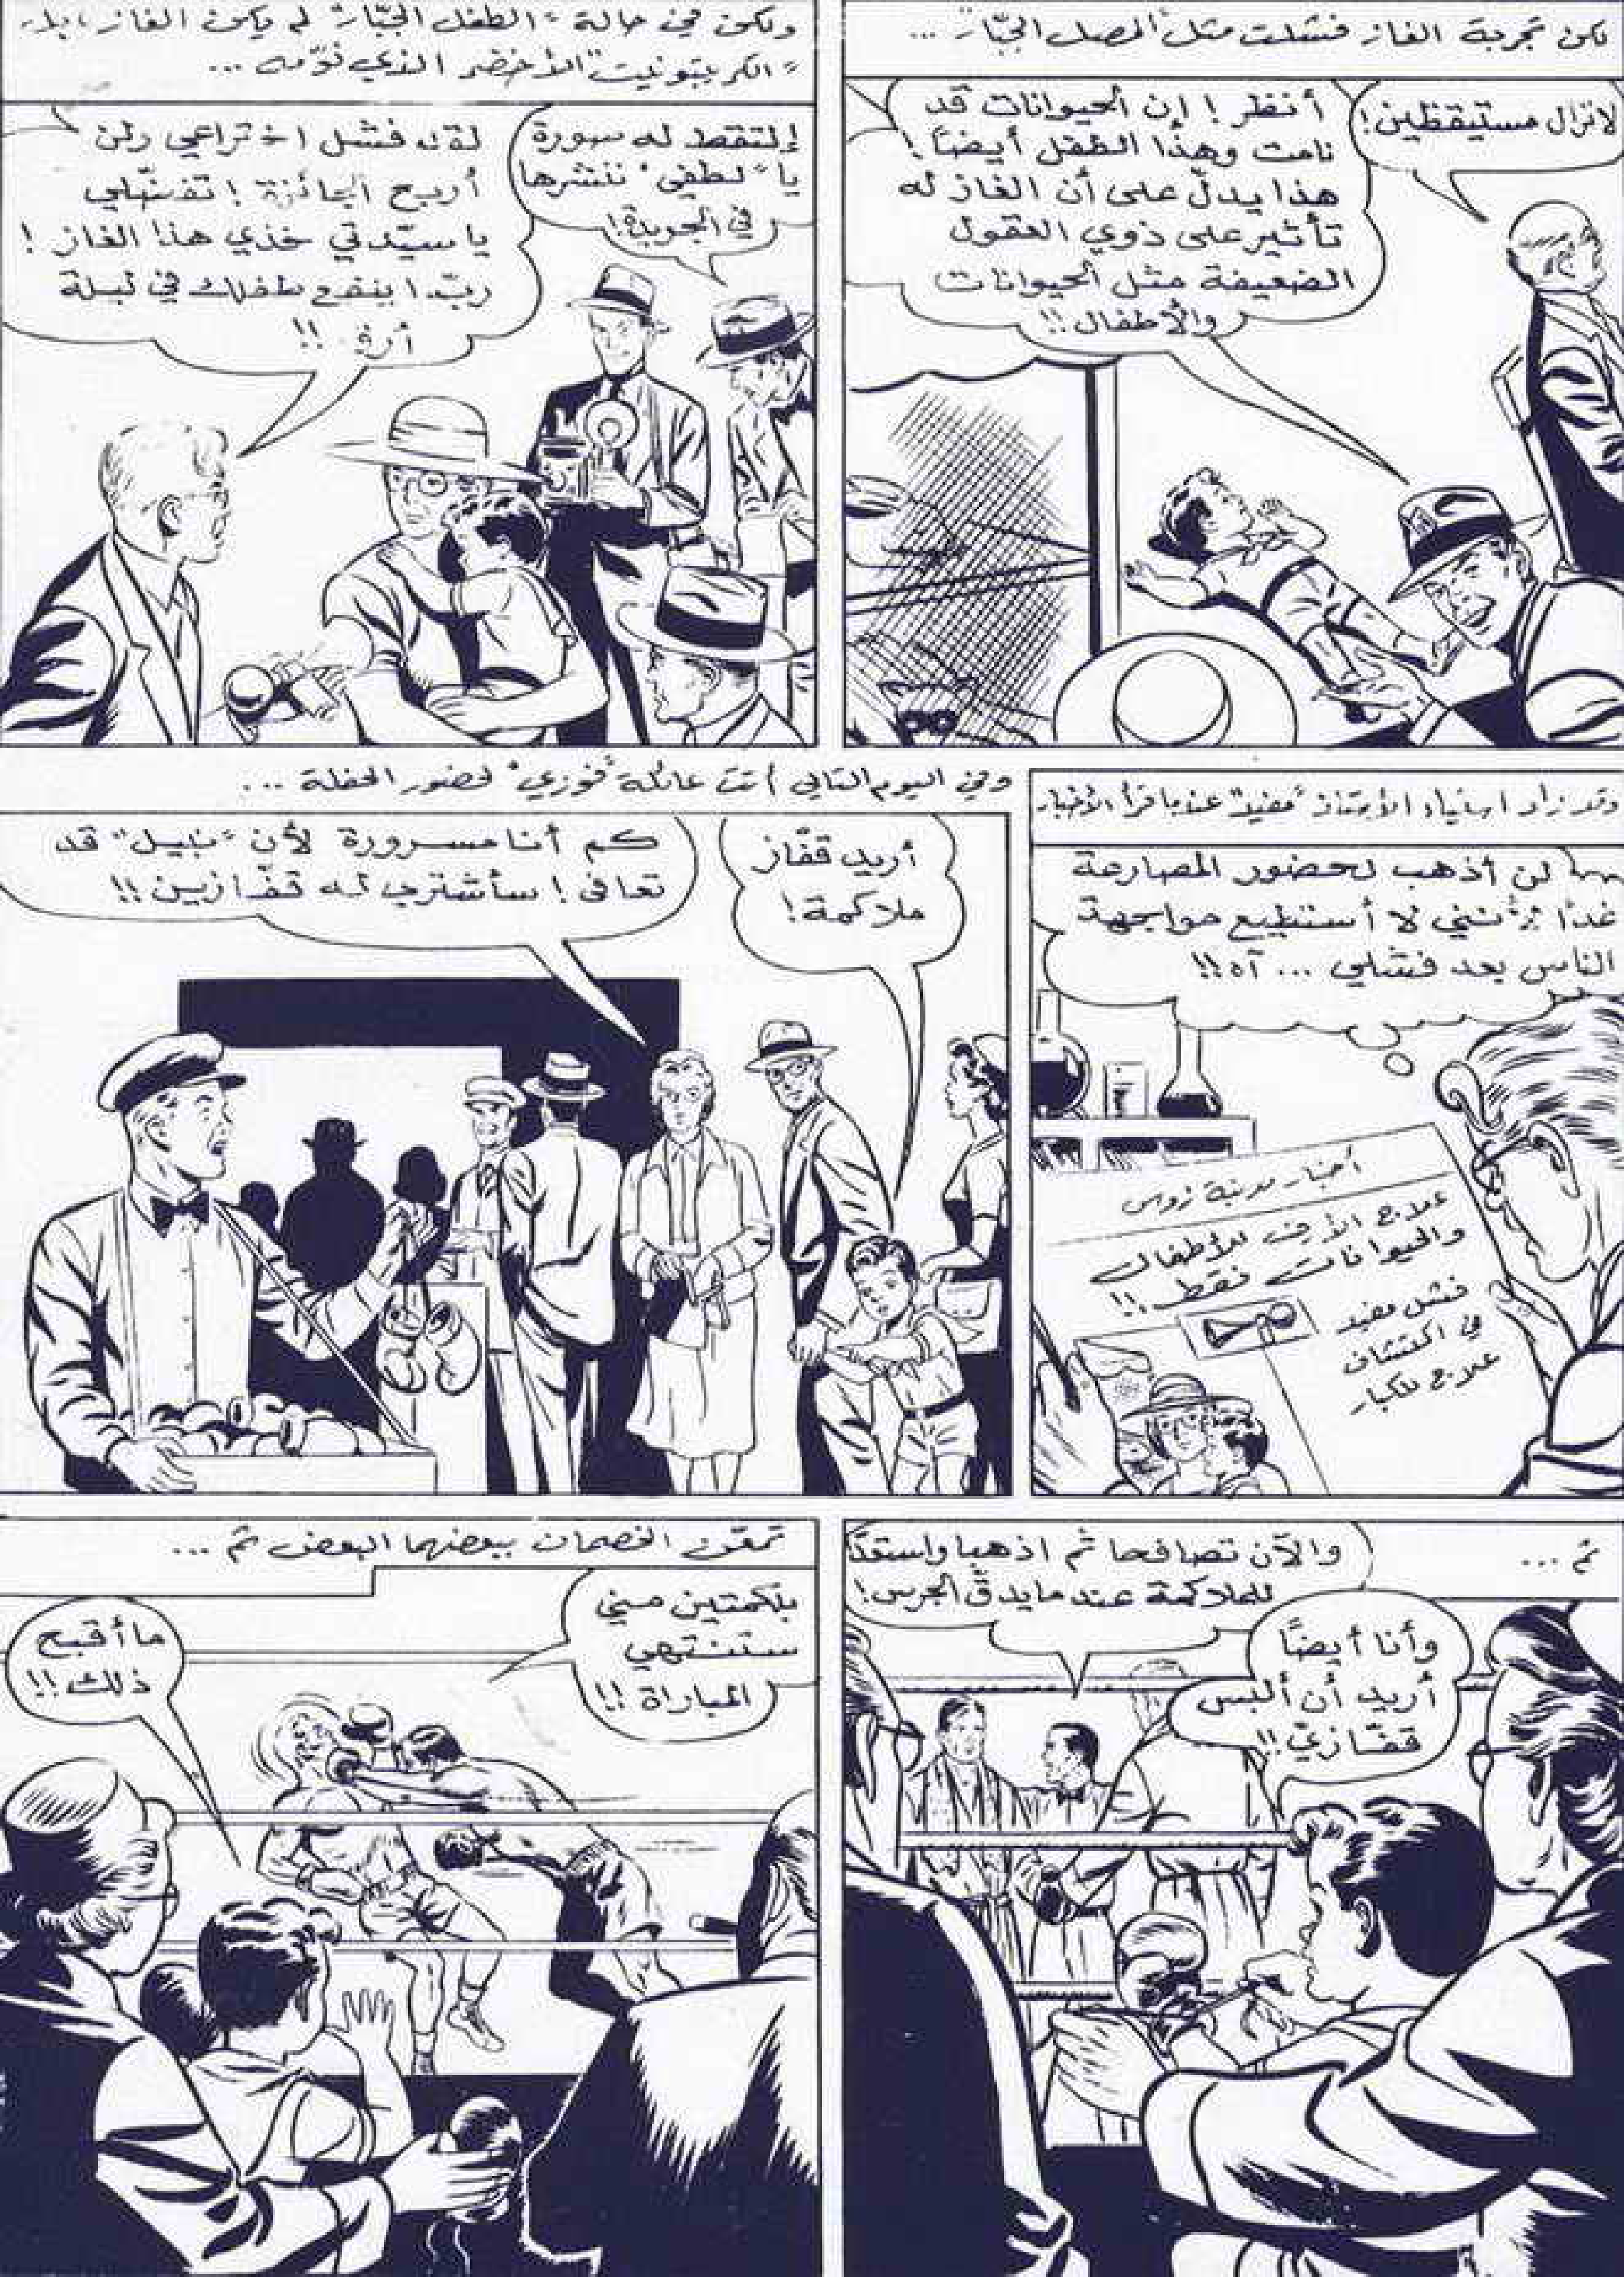 لكن تجربة الغاز فشلت مثل "المصل الجبّار" ...
لانزال مستيقظين!
أنظر! إن الحيوانات قد
نامت وهذا الطفل أيضًا!
هذا يدلّ على أن الغاز له
تأثير على ذوي العقول
الضعيفة مثل الحيوانات
والأطفال!!
ولكن في حالة "الطفل الجبّار" لم يكن الغاز، بل
"الكريبتونيت" الأخضر الذي نوّمه ...
إلتقط له سورة
يا "لطفي" ننشرها
في الجريدة!
لقد فشل اختراعي ولن
أربح الجائزة! تفضّلي
يا سيّدتي خذي هذا الغاز!
ربّما ينفع طفلك في ليلة
أرق!!
وقد زاد استياء الأستاذ "مفيد" عندما قرأ الأخبار
لن أذهب لحضور المصارعة
غدًا لأنني لا أستطيع مواجهة
الناس بعد فشلي ... آه!!
أخبار مدينة زوس
علاج الأرق للأطفال
والحيوانات فقط!!
فشل مفيد
في اكتشاف
علاج للكبار
وفي اليوم التالي أتت عائلة "فوزي" لحضور الحفلة ...
أريد قفّاز
ملاكمة!
كم أنا مسرورة لأن "نبيل" قد
تعافى! سأشتري له قفّازين!!
ثم ...
والآن تصافحا ثم اذهبا واستعدّا
للملاكمة عندما يدقّ الجرس!
وأنا أيضًا
أريد أن ألبس
قفّازيّ!!
تمعّن الخصمان ببعضهما البعض ثم ...
بلكمتين مني
ستنتهي
المباراة!!
ما أقبح
ذلك!!